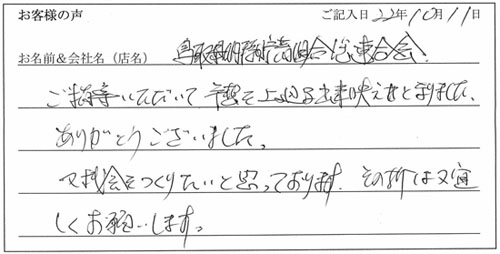 お客様の声 ご記入日 22年10月11日
お名前&会社名（店名） 鳥取県 組合 連合会
ご いただいて 予想を上回る出来映えとなりました、
ありがとうございました。
又機会をつくりたいと思っております。その折は又宜
しくお願いします。